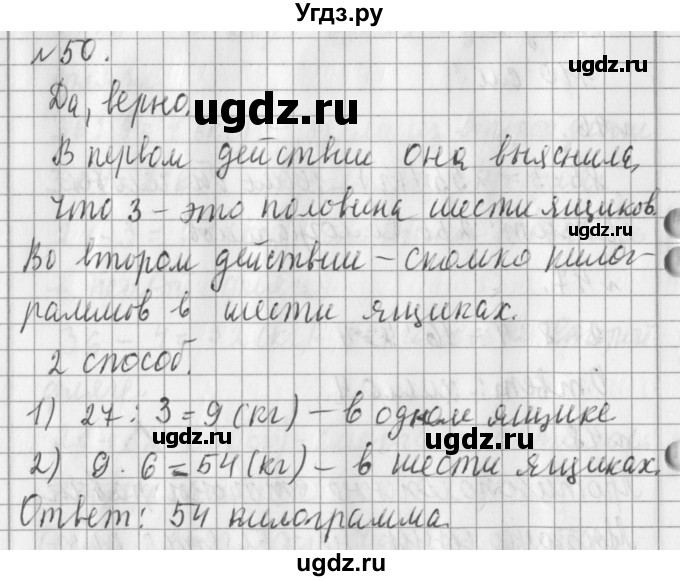 Угдз.ру
№50.
ugdz.ru
Да, верно.
ugdz.ru
В первом действии она выяснила,
ugdz.ru
что 3 – это половина шести ящиков.
Во втором действии – сколько килог-
раммов в шести ящиках.
2 способ.
1) 27 : 3 = 9 (кг) – в одном ящике
ugdz.ru
ugdz.ru
2) 9 · 6 = 54 (кг) – в шести ящиках.
Ответ: 54 килограмма.
ugdz.ru
ugdz.ru